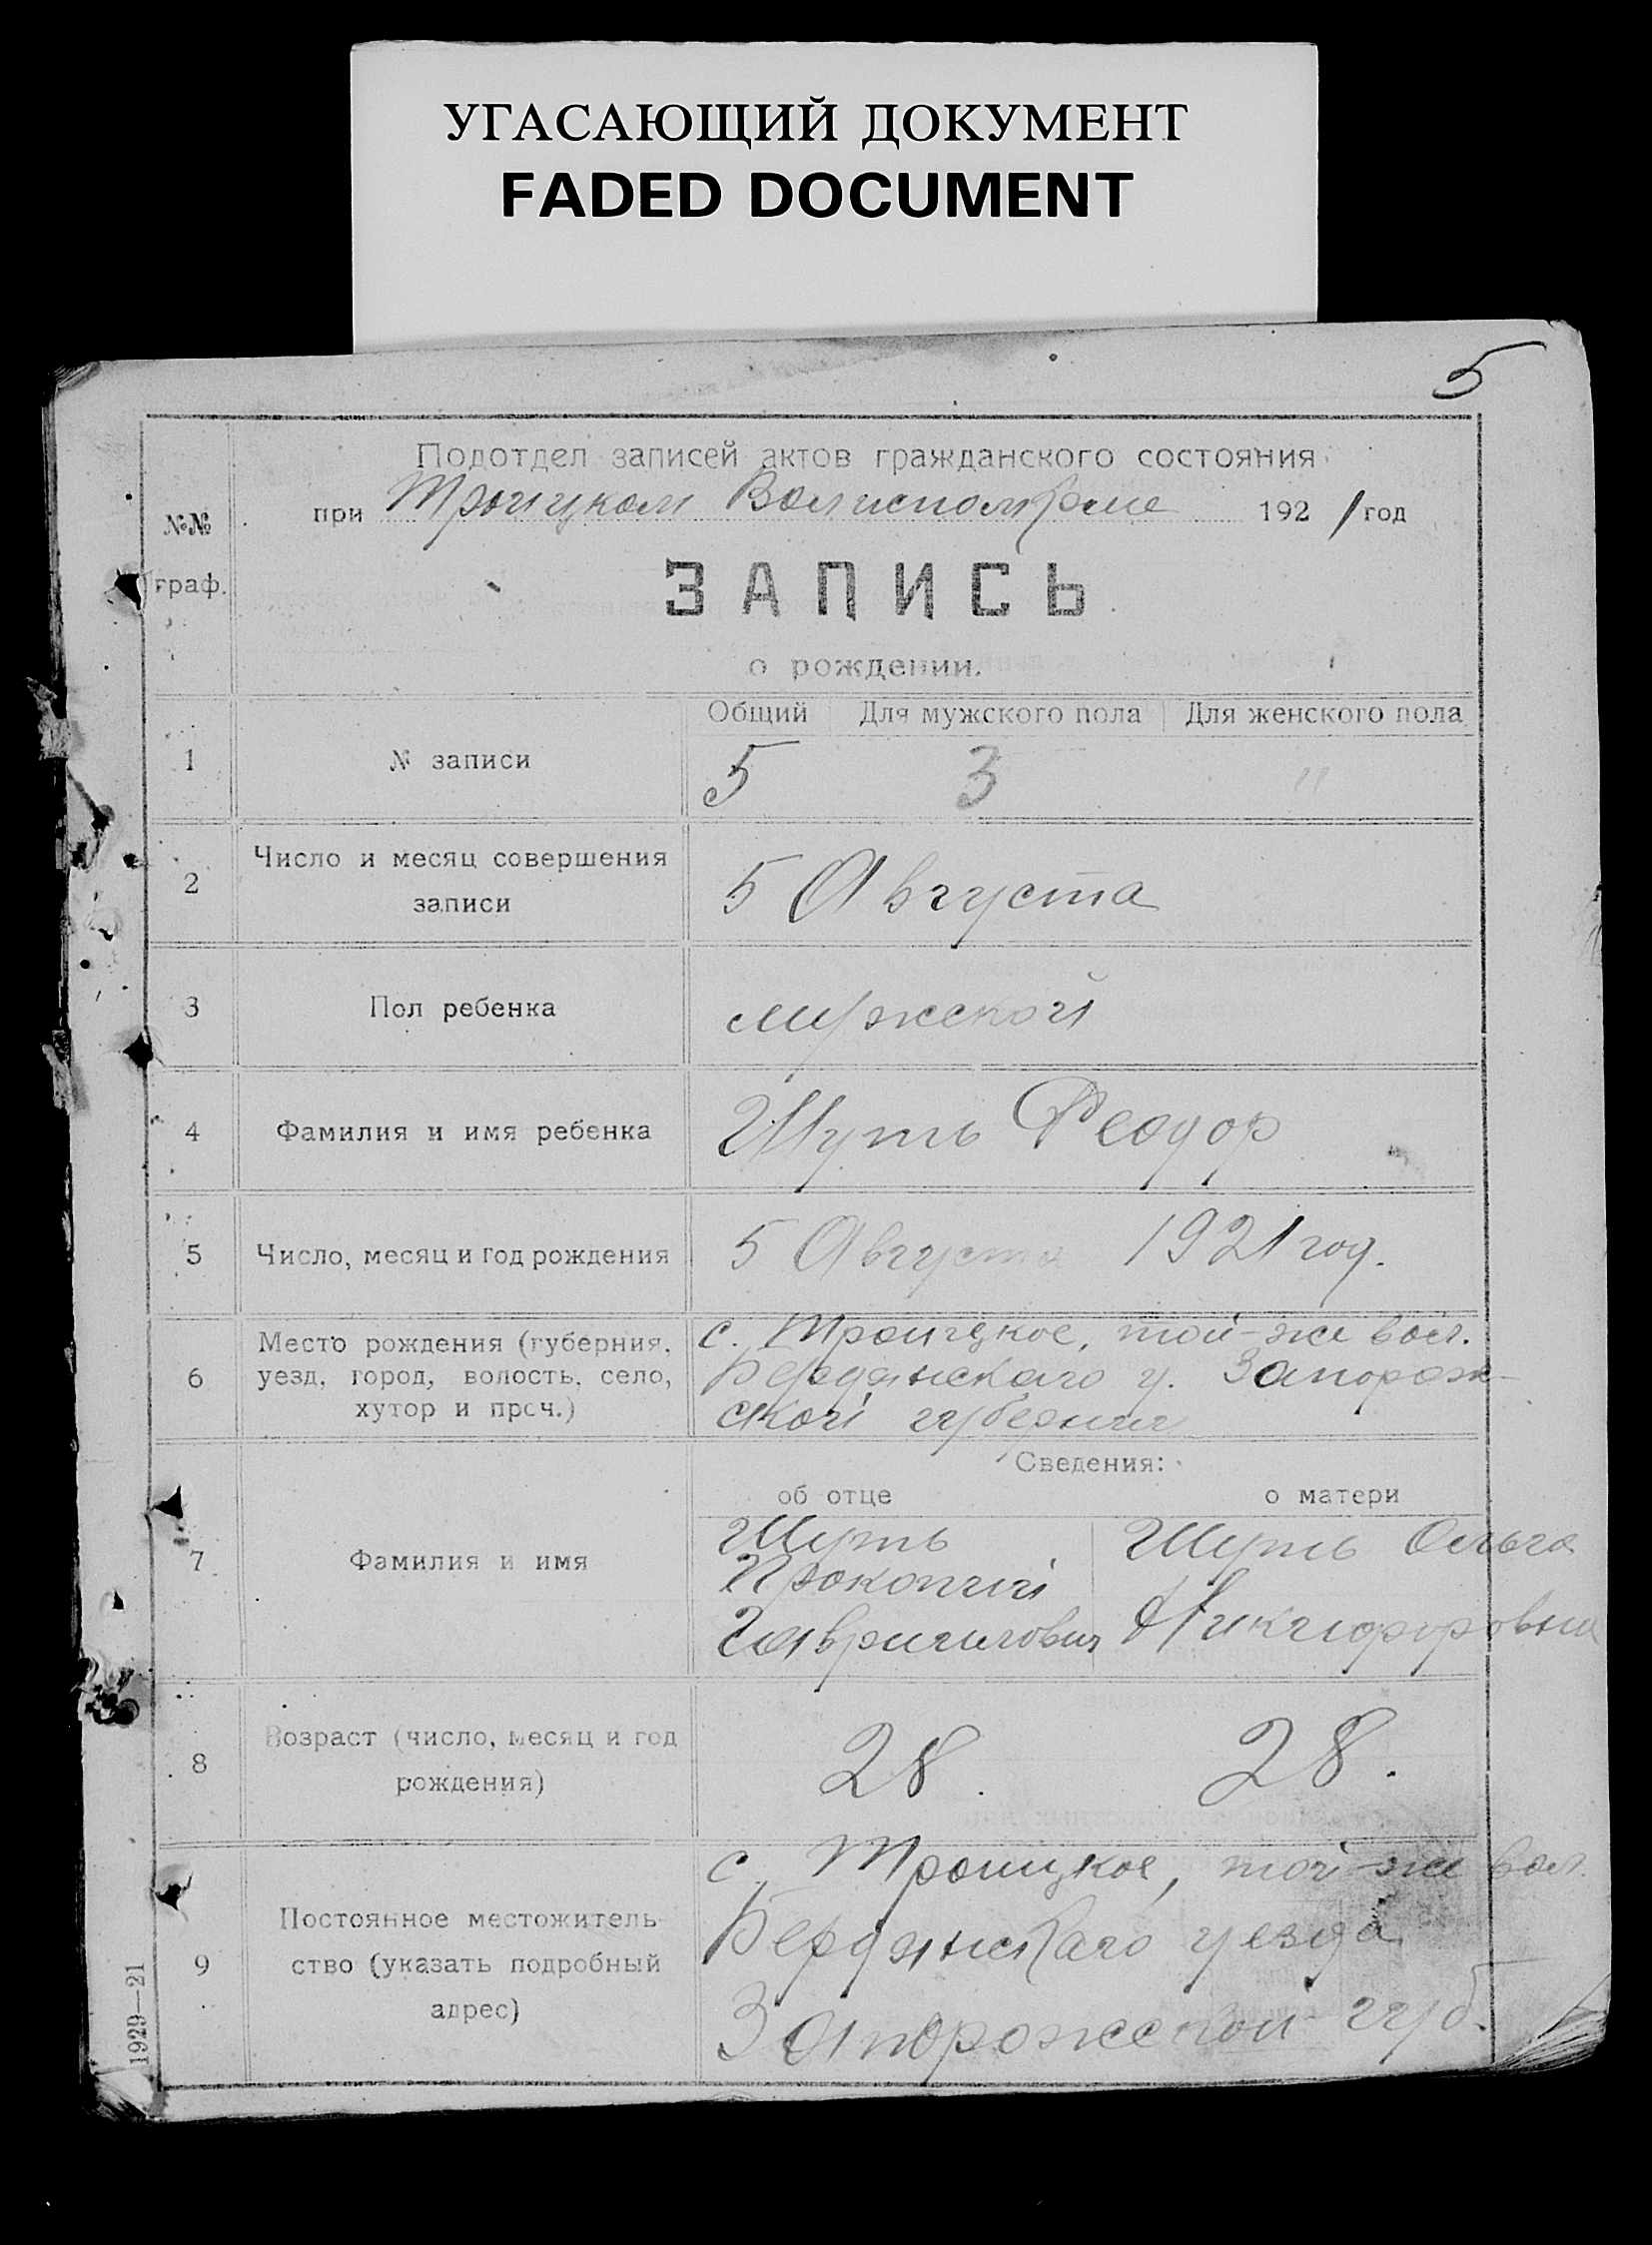 УГАСАЮЩИЙ ДОКУМЕНТ
FADED DOCUMENT
5
№№ граф.
Подотдел записей актов гражданского состояния
при Троицком Волисполкоме 1921 год
ЗАПИСЬ
о рождении.
Общий Для мужского пола Для женского пола
1 № записи 5 3 "
2 Число и месяц совершения
записи
5 Августа
3 Пол ребенка мужской
4 Фамилия и имя ребенка Шуть Феодор
5 Число, месяц и год рождения 5 Августа 1921 год.
6 Место рождения (губерния,
уезд, город, волость, село,
хутор и проч.)
с. Троицкое, той-же вол.
Бердянскаго у. Запорож-
ской губернии
Сведения:
об отце о матери
7 Фамилия и имя
Шуть
Прокопий
Гавриилович
Шуть Ольга
Никифоровна
8 Возраст (число, месяц и год
рождения)
28. 28.
9 Постоянное местожитель-
ство (указать подробный
адрес)
с. Троицкое, той-же вол.
Бердянскаго уезда
Запорожской губ.
1929—21